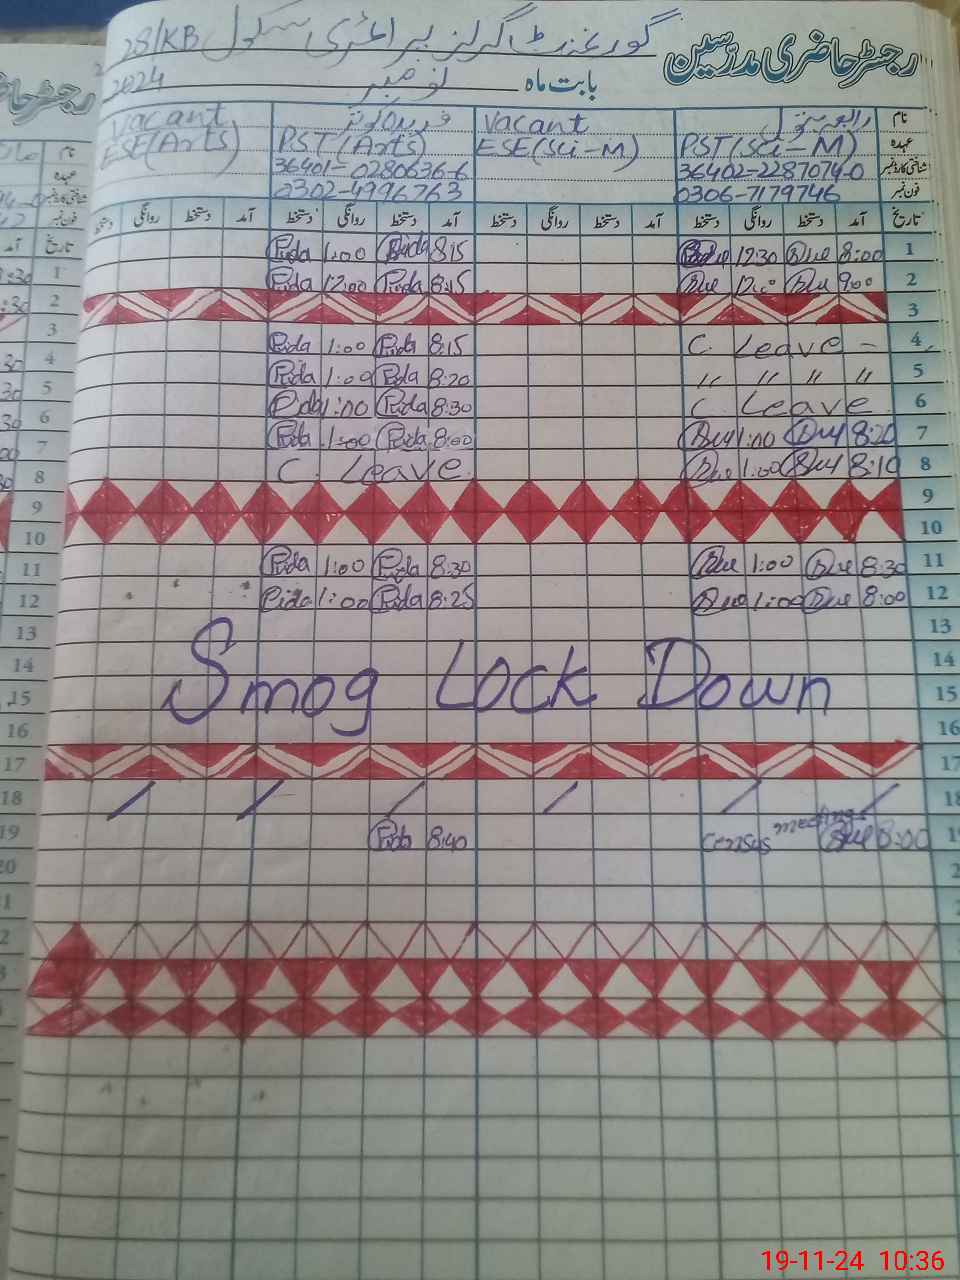 رجسٹر حاضری مدرسین گورنمنٹ گرلز پرائمری سکول 28/KB
بابت ماہ نومبر 2024
نام رابعہ بتول Vacant فریدہ کوثر Vacant
عہدہ PST (Sci-M) ESE (Sci-M) PST (Arts) ESE (Arts)
شناختی کارڈ نمبر 36402-2287074-0 36401-0280636-6
فون نمبر 0306-7179746 0302-4996763
تاریخ آمد دستخط روانگی دستخط آمد دستخط روانگی دستخط آمد دستخط روانگی دستخط
1 8:00 12:30 8:15 Fida 1:00 Fida
2 9:00 12:00 8:15 Fida 12:00 Fida
3
4 C. Leave - 8:15 Fida 1:00 Fida
5 〃 〃 〃 〃 8:20 Fida 1:00 Fida
6 C. Leave 8:30 Fida 1:00 Fida
7 8:20 1:00 8:00 Fida 1:00 Fida
8 8:10 1:00 C. Leave
9
10
11 8:30 1:00 8:30 Fida 1:00 Fida
12 8:00 1:00 8:25 Fida 1:00 Fida
13
14
15 Smog Lock Down
16
17
18
19 8:00 Census meeting 8:40 Fida
19-11-24 10:36